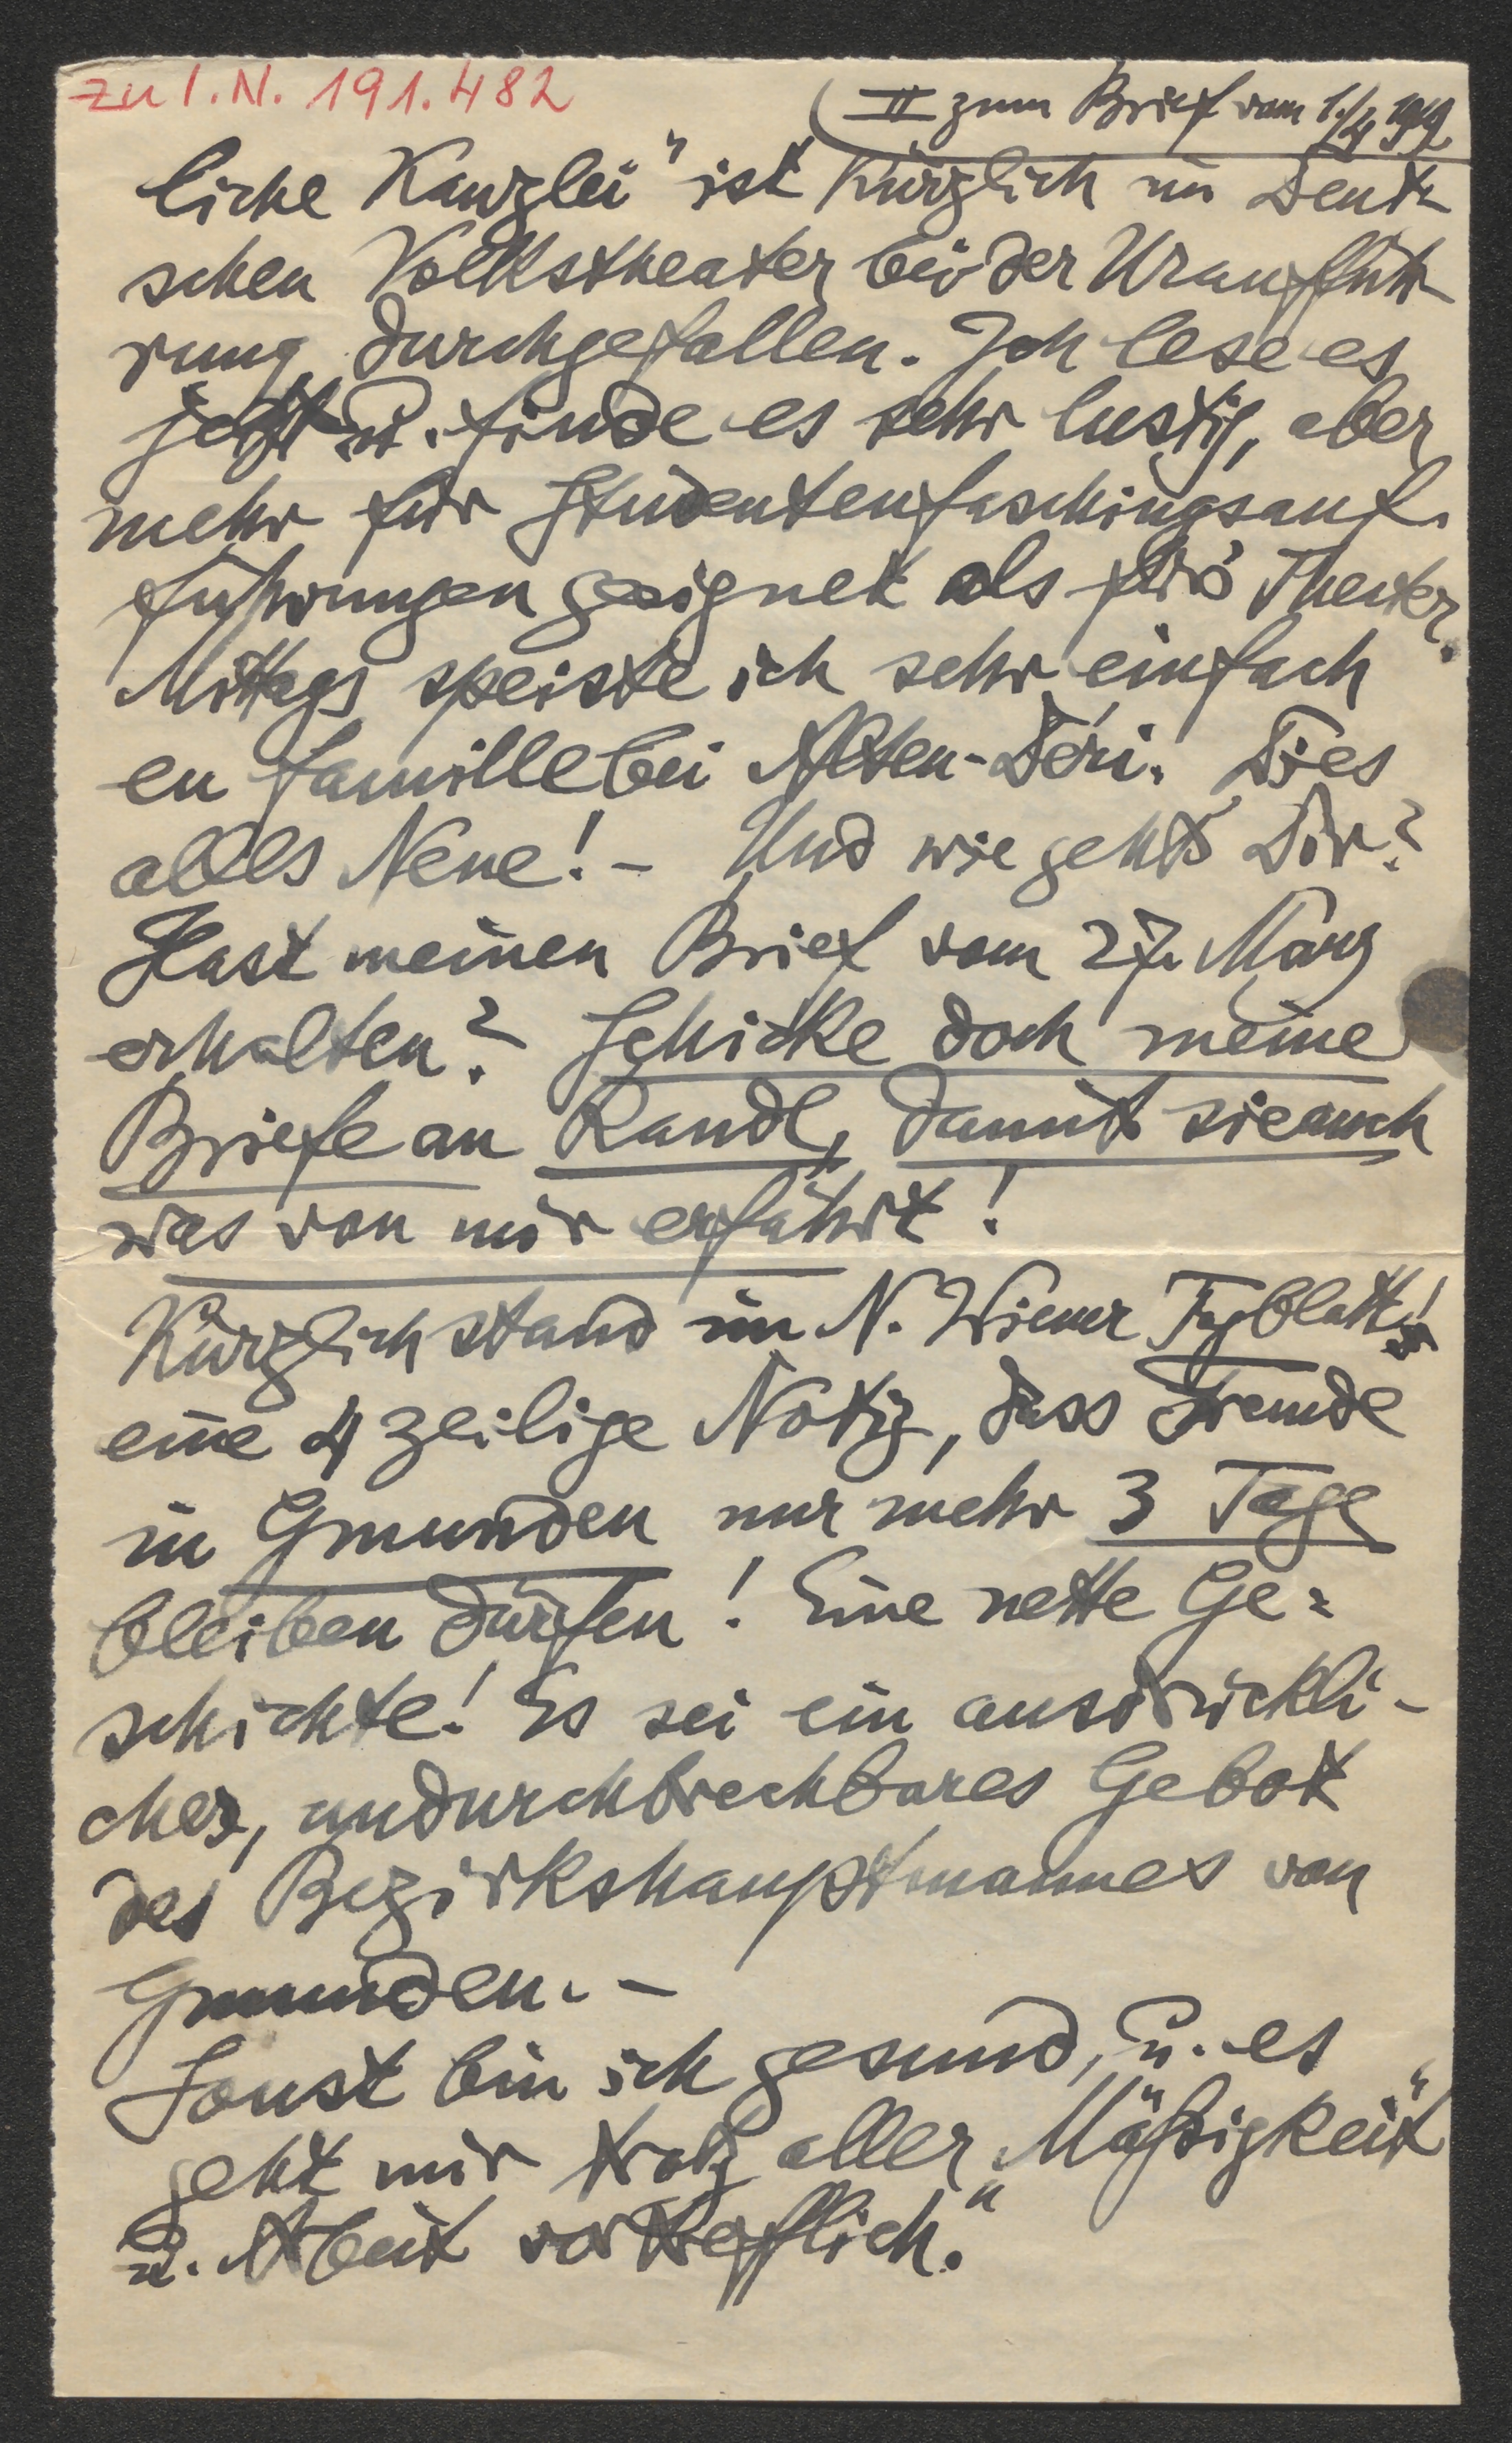 zu I.N. 191.482
II zum Brief vom 1./4 1919
liche Kanzlei" ist kürzlich im Deut-
schen Volkstheater bei der Urauffüh-
rung durchgefallen. Ich lese es
jetzt u. finde es sehr lustig, aber
mehr für Studentenfaschingsauf-
führungen geeignet als für's Theater.
Mittags speiste ich sehr einfach
en famille bei
alles Neue! - Und wie geht's Dir?
Hast meinen Brief vom 27. März
erhalten? Schicke doch meine
Briefe an Randl, damit sie auch
was von mir erfährt!
Kürzlich stand im N. Wiener Tagblatt
eine 4 zeilige Notiz, dass Fremde
in Gmunden nur mehr 3 Tage
bleiben dürfen! Eine nette Ge=
schichte! Es sei ein ausdrückli-
ches, undurchbrechbares Gebot
des Bezirkshauptmannes von
Gmunden. -
Sonst bin ich gesund, u. es
geht mir trotz aller „Mäßigkeit"
u. Arbeit „vortrefflich."